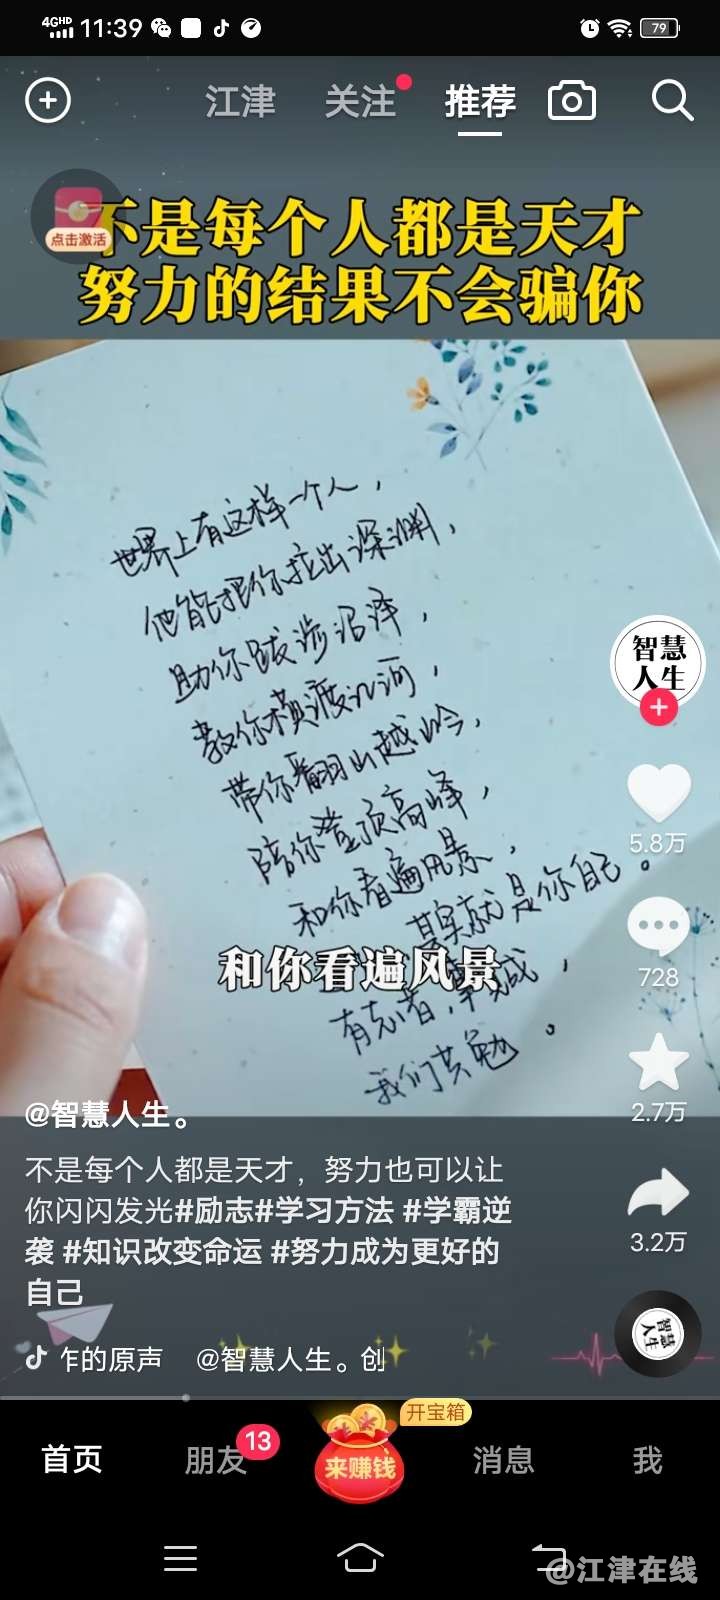 4GHD 11:39 79
江津 关注 推荐
点击激活
不是每个人都是天才
努力的结果不会骗你
世界上有这样一个人，
他能把你拉出深渊，
助你跋涉沼泽，
教你横渡江河，
带你翻山越岭，
陪你登顶高峰，
和你看遍风景，
其实就是你自己。
和你看遍风景
有志者，事竟成，
我们共勉。
智慧
人生
5.8万
728
2.7万
3.2万
@智慧人生。
不是每个人都是天才，努力也可以让
你闪闪发光#励志#学习方法 #学霸逆
袭 #知识改变命运 #努力成为更好的
自己
乍的原声 @智慧人生。创
智慧
人生
开宝箱
首页 朋友 13 来赚钱 消息 我
@江津在线